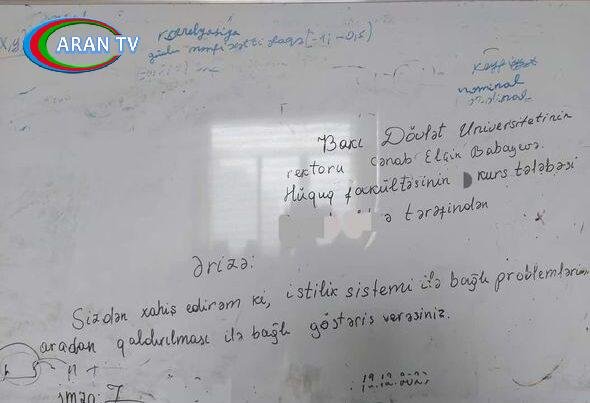 ARAN TV
Korrelyasiya
nominal
Bakı Dövlət Universitetinin
rektoru cənab Elçin Babayevə.
Hüquq fakültəsinin kurs tələbəsi
ə tərəfindən
Ərizə:
Sizdən xahiş edirəm ki, istilik sistemi ilə bağlı problemlərin
aradan qaldırılması ilə bağlı göstəriş verəsiniz.
imza: